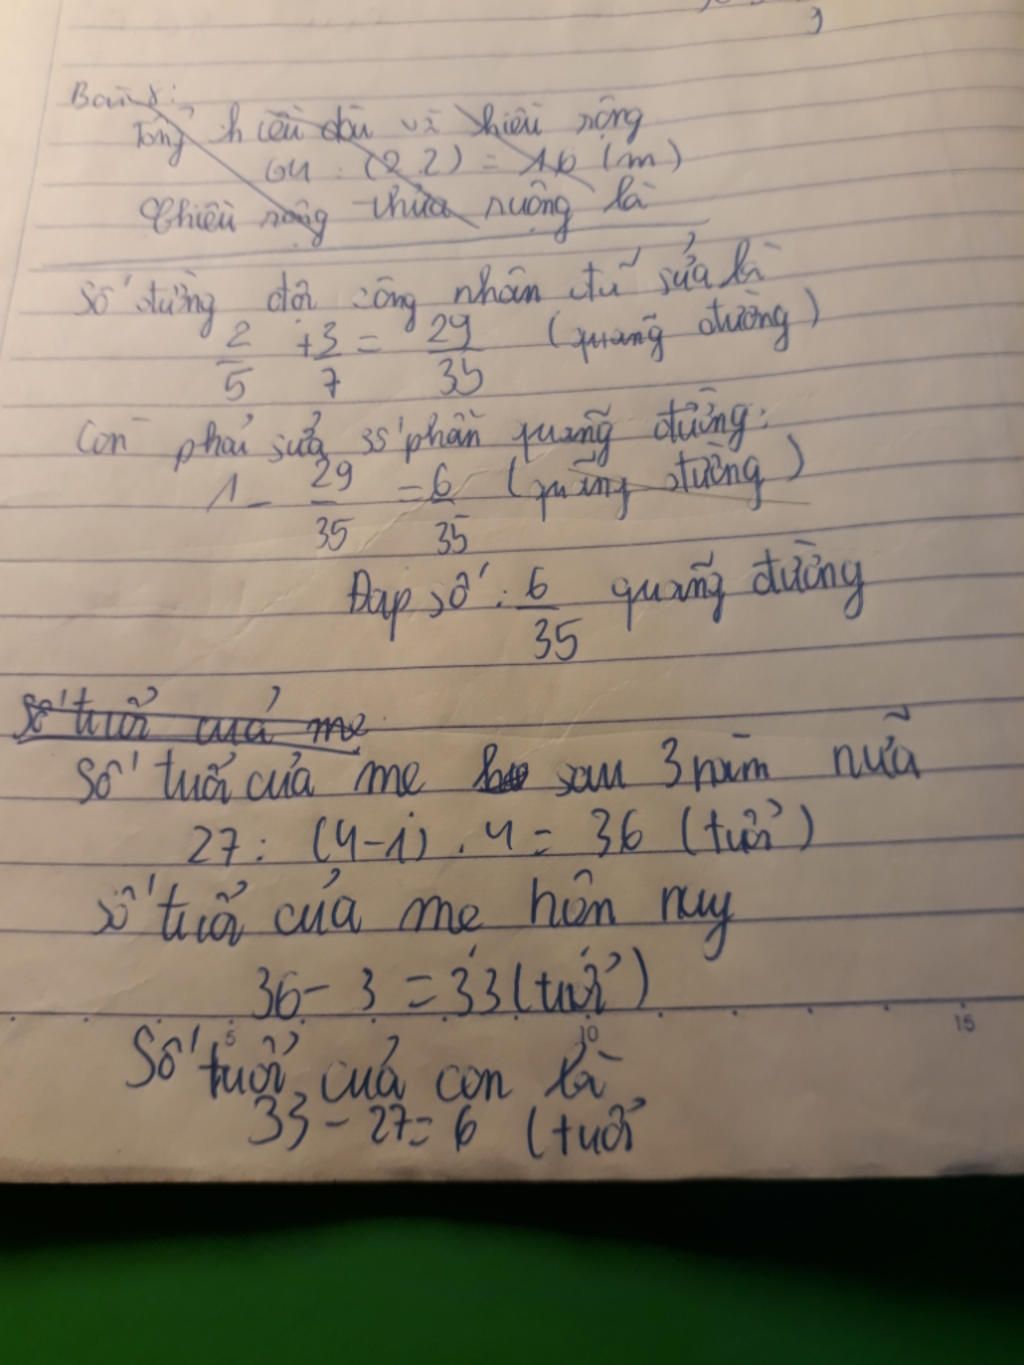 3
Bài 8:
Tổng chiều dài và chiều rộng
64 : (2.2) = 16 (m)
Chiều rộng thửa ruộng là
Số đường đội công nhân đã sửa là
2/5 + 3/7 = 29/35 (quãng đường)
Còn phải sửa số phần quãng đường:
1 - 29/35 = 6/35 (quãng đường)
Đáp số : 6/35 quãng đường
Số tuổi của mẹ
Số tuổi của mẹ sau 3 năm nữa
27 : (4-1) . 4 = 36 (tuổi)
Số tuổi của mẹ hôn nay
36 - 3 = 33 (tuổi)
5 10 15
Số tuổi của con là
33 - 27 = 6 (tuổi